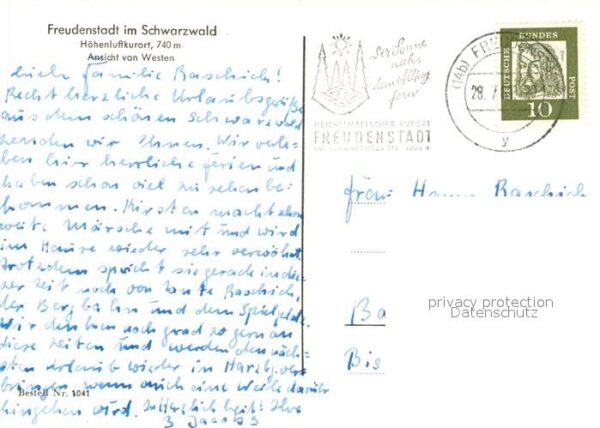 Freudenstadt im Schwarzwald
Höhenluftkurort, 740 m
Ansicht von Westen
Familie Raschich!
Recht herzliche Urlaubsgrüße
aus dem schönen Schwarzwald
senden wir Ihnen. Wir verle-
ben hier herrliche Ferien und
haben schon viel zu sehen be-
kommen. Kirsten macht schon
weite Märsche mit und wird
im Hause wieder sehr verwöhnt.
Trotzdem spricht sie gerade in die-
ser Zeit noch von Tante Raschich,
der Bergbahn und dem Spielplatz.
Wir denken noch grad so gern an
diese Zeiten und werden den näch-
sten Urlaub wieder in Harzbg. ver-
bringen, wenn auch eine Weile darüber
hingehen wird. Herzlichkeit! Ihre
3 Jacobs
Bestell Nr. 1041
Der Sonne
nahe
dem Alltag
fern
HEILKLIMATISCHER KURORT
FREUDENSTADT
(14b) FREUDEN
28. 7.
y
DEUTSCHE BUNDESPOST
10
Frau Raschich
Ba
Bis
privacy protection
Datenschutz